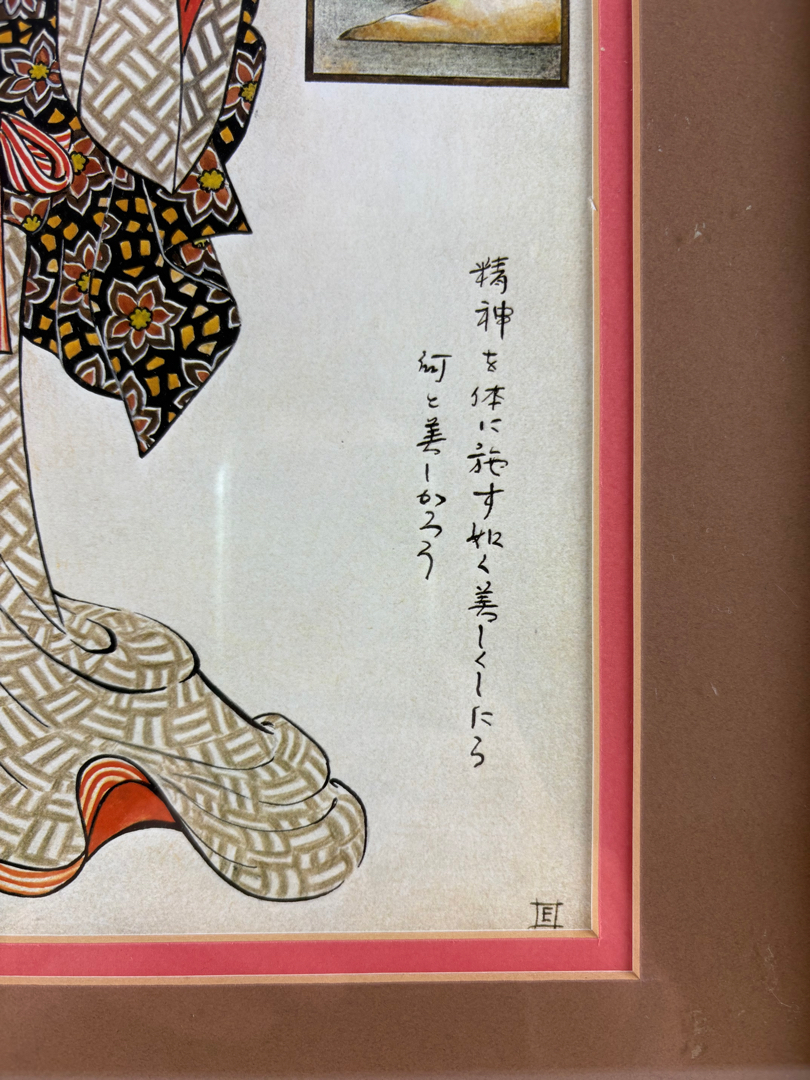 精神を体に施す如く美しくしたら
何と美しかろう
E